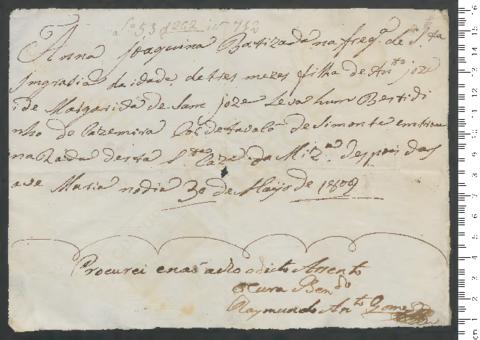 Anna Joaquina Bautizada na freg.ª de S.ta
Ingracia da idade de tres mezes filha de An.to Joze
de Margarida de Sam Joze Leva hum Bestidi
nho de Cazemira Cor de de Simonte emtrou
na Roda desta S.ta Caza da Miz.ª despois das
ave Maria no dia 30 de Maijo de 1809
Procurei e naõ acho o dito Assento
O Cura Ben.do
Raymundo An.to Gomes